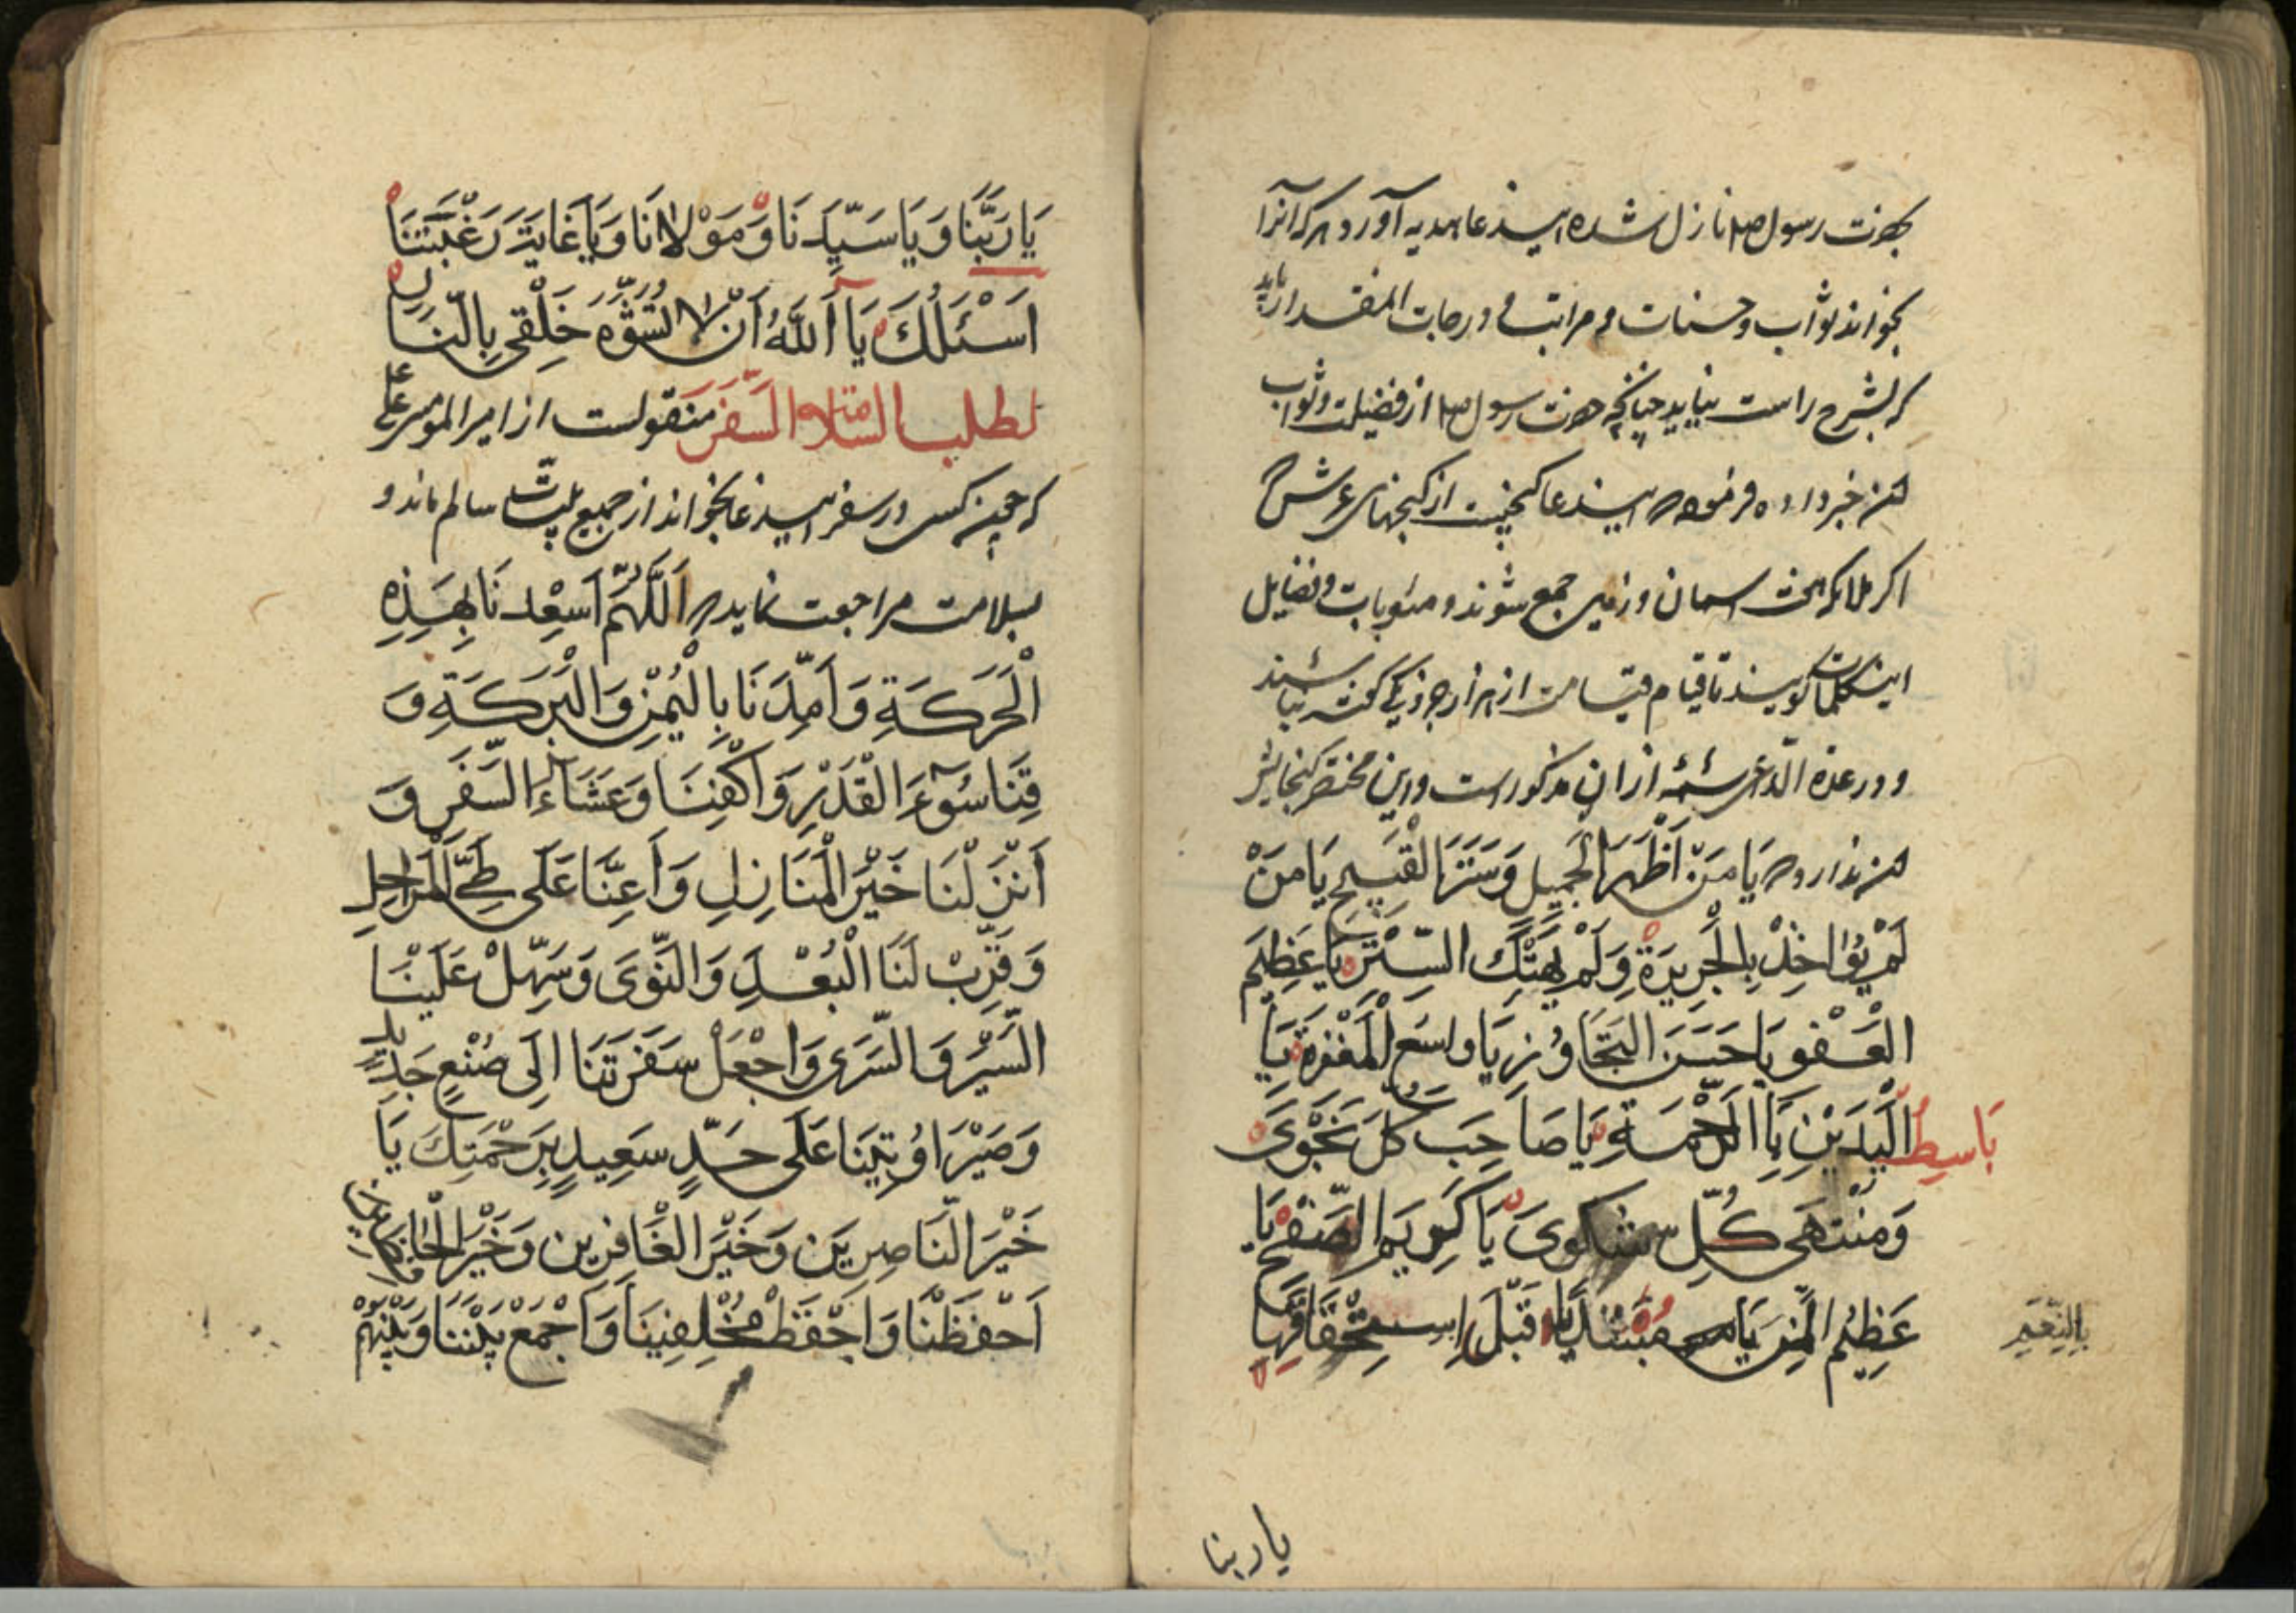 بحضرت رسول صلعم نازل شده ایندعا هدیه آورد و هر که آنرا
بخواند ثواب و حسنات و مراتب و درجات آنمقدار یابد
که بشرح راست نیاید چنانچه حضرت رسول صلعم از فضیلت و ثواب
این خبر داده فرموده اینه دعا گنجیست از گنجهای عرش
اگر ملائکه هفت اسمان و زمین جمع شوند و مثوبات و فضایل
اینکلمات گویند تا قیام قیامت از هزار جزو یکی گفته نباشند
و در عدة الداعی شمه از ان مذکور است و این مختصر گنجایش
این ندارد یَا مَنْ أَظْهَرَ الْجَمِیلَ وَسَتَرَ الْقَبِیحَ یَا مَنْ
لَمْ یُؤَاخِذْ بِالْجَرِیرَةِ وَلَمْ یَهْتِكِ السِّتْرَ یَا عَظِیمَ
الْعَفْوِ یَا حَسَنَ التَّجَاوُزِ یَا وَاسِعَ الْمَغْفِرَةِ یَا
بَاسِطَ الْیَدَیْنِ بِالرَّحْمَةِ یَا صَاحِبَ كُلِّ نَجْوَی
وَمُنْتَهَی كُلِّ شَكْوَی یَا كَرِیمَ الصَّفْحِ یَا
عَظِیمَ الْمَنِّ یَا مُبْتَدِیًا قَبْلَ اسْتِحْقَاقِهَا
بِالنِّعَمِ
یا ربنا
یَا رَبَّنَا وَیَا سَیِّدَنَا وَمَوْلَانَا وَیَا غَایَةَ رَغْبَتِنَا
اَسْئَلُكَ یَا اَللَّهُ اَنْ لَا تُشَوِّهَ خَلْقِی بِالنَّارِ
لطلب السلامة السَّفَر منقولست از امیر المومنین علی ع
که چون کسی در سفر اینه دعا بخواند از جمیع بلیّات سالم ماند و
بسلامت مراجعت نماید اَللَّهُمَّ اَسْعِدْنَا بِهَذِهِ
الْحَرَكَةِ وَاَمِدَّنَا بِالْیُمْنِ وَالْبَرَكَةِ وَ
قِنَا سُوءَ الْقَدَرِ وَاكْفِنَا وَعَشَاءَ السَّفَرِ وَ
اَنْزِلْنَا خَیْرَ الْمَنَازِلِ وَاَعِنَّا عَلَی طَیِّ الْمَرَاحِلِ
وَقَرِّبْ لَنَا الْبُعْدَ وَالنَّوَی وَسَهِّلْ عَلَیْنَا
السَّیْرَ وَالسَّرَی وَاجْعَلْ سَفَرَتَنَا اِلَی صُنْعٍ جَدِیدٍ
عَلَی جَدٍّ سَعِیدٍ بِرَحْمَتِكَ یَا
خَیْرَ النَّاصِرِینَ وَخَیْرَ الْغَافِرِینَ وَخَیْرَ
اَحْفَظْنَا وَاحْفَظْ مُخَلِّفِینَا وَاجْمَعْ بَیْنَنَا وَبَیْنَهُمْ